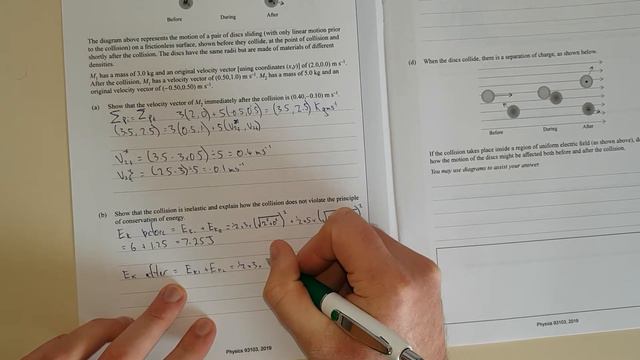 Before During After
The diagram above represents the motion of a pair of discs sliding (with only linear motion
prior to the collision) on a frictionless surface, shown before they collide, at the point of collision and
shortly after the collision. The discs have the same radii but are made of materials of different
densities.
M₁ has a mass of 3.0 kg and an original velocity vector [using coordinates (x,y)] of (2.0,0.0) m s⁻¹.
After the collision, M₁ has a velocity of (0.50,1.0) m s⁻¹. M₂ has a mass of 5.0 kg and an
original velocity vector of (−0.50,0.50) m s⁻¹.
(a) Show that the velocity vector of M₂ immediately after the collision is (0.40,−0.10) m s⁻¹.
Σpi = Σpf 3(2,0)+5(-0.5,0.5) = (3.5, 2.5) kgms⁻¹
(3.5, 2.5) = 3(0.5,1)+5(
= (3.5 - 3×0.5)÷5 = 0.4 ms⁻¹
= (2.5-3)÷5 = -0.1 ms⁻¹
(b) Show that the collision is inelastic and explain how the collision does not violate the principle
of conservation of energy.
Ek before = Ek₁ + Ek₂ = ½×3×(√2²+0²)² + ½×5×(√
= 6 + 1.25 = 7.25J
Ek after = Ek1 + Ek2 = ½×3×
Physics 93103, 2019
(d) When the discs collide, there is a separation of charge, as shown below.
Before During After
If the collision takes place inside a region of uniform electric field (as shown above),
how the motion of the discs might be affected both before and after the collision.
You may use diagrams to assist your answer
Physics 93103, 2019